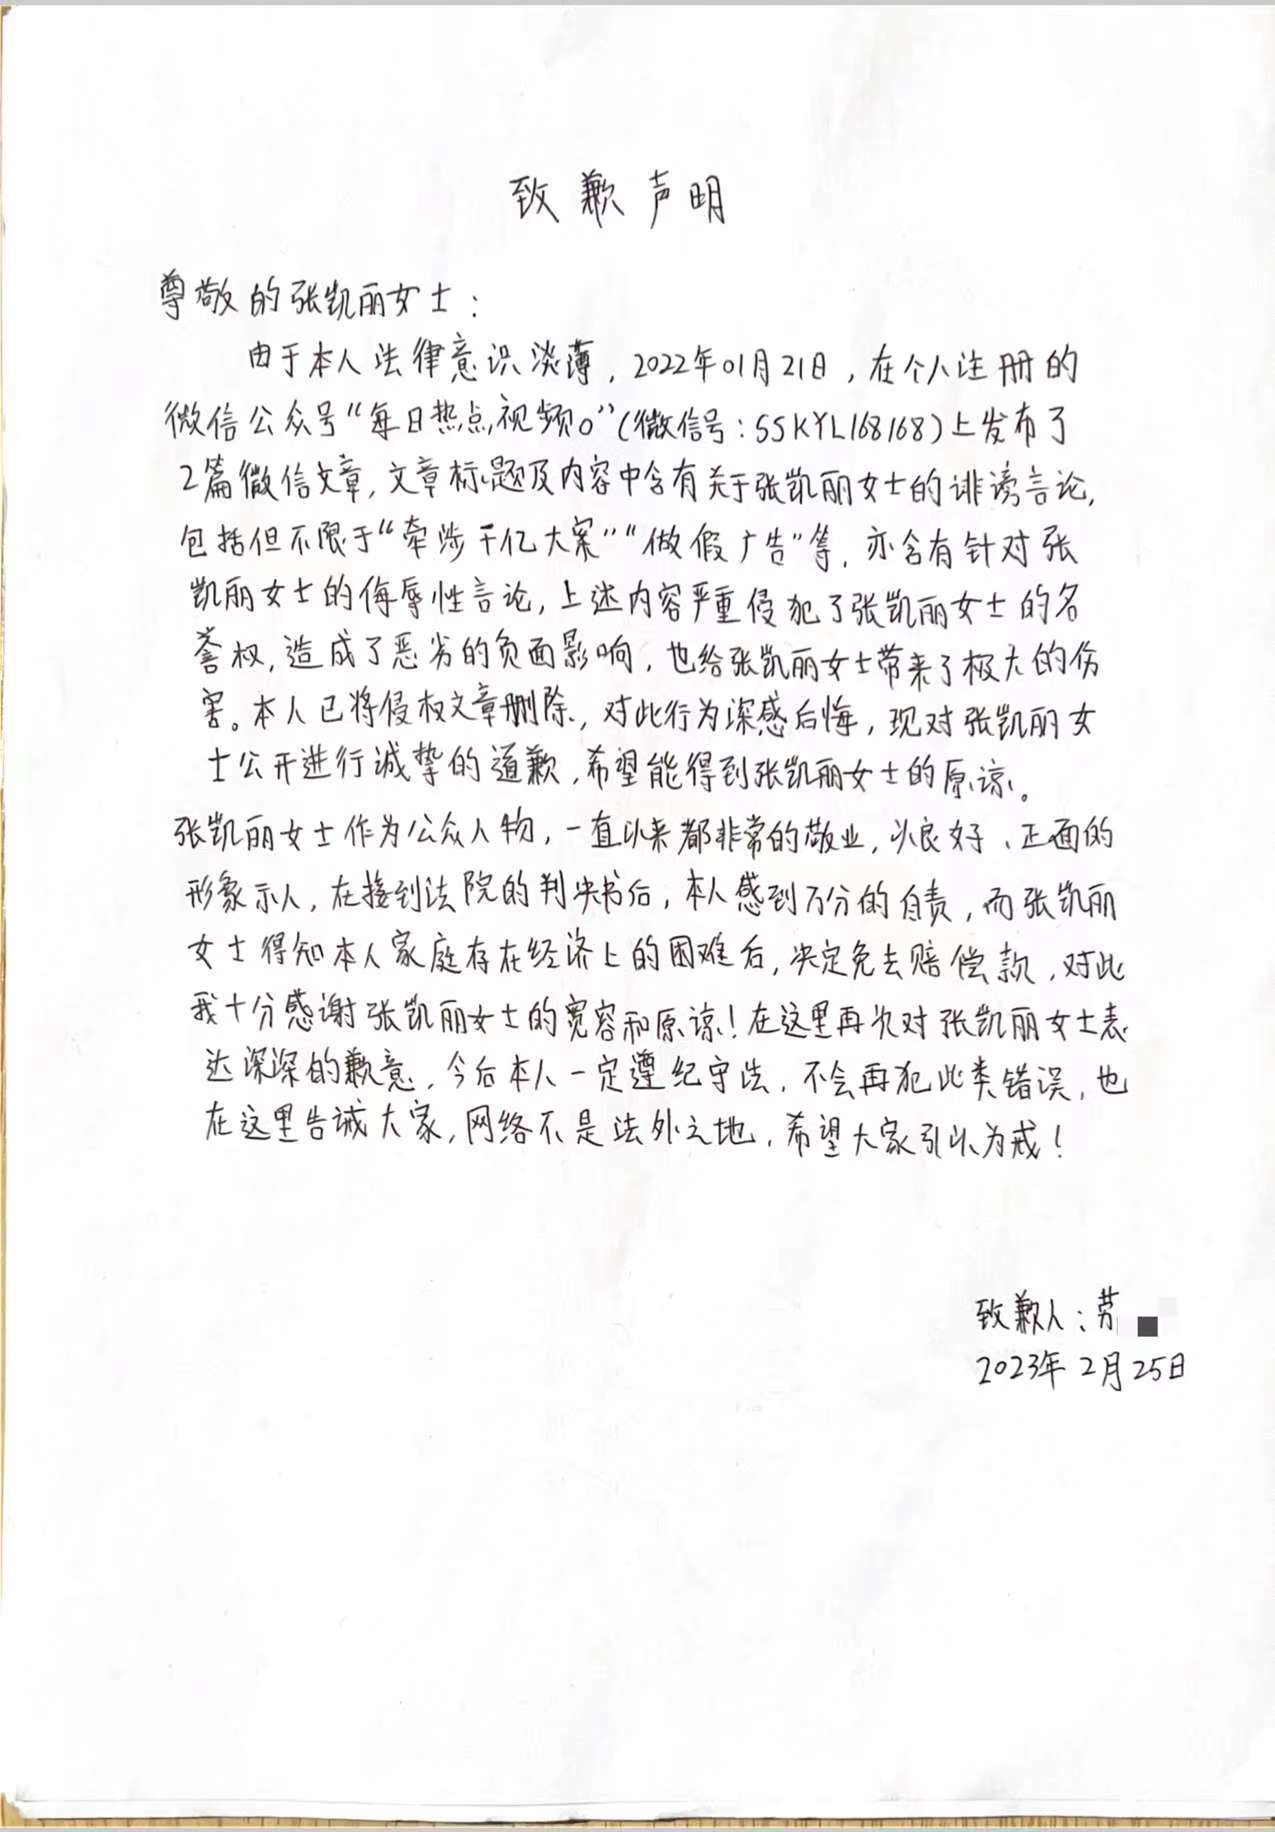 致歉声明
尊敬的张凯丽女士：
由于本人法律意识淡薄，2022年01月21日，在个人注册的
微信公众号“每日热点视频o”（微信号：SSKYL168168）上发布了
2篇微信文章，文章标题及内容中含有关于张凯丽女士的诽谤言论，
包括但不限于“牵涉千亿大案”“做假广告”等，亦含有针对张
凯丽女士的侮辱性言论，上述内容严重侵犯了张凯丽女士的名
誉权，造成了恶劣的负面影响，也给张凯丽女士带来了极大的伤
害。本人已将侵权文章删除，对此行为深感后悔，现对张凯丽女
士公开进行诚挚的道歉，希望能得到张凯丽女士的原谅。
张凯丽女士作为公众人物，一直以来都非常的敬业，以良好、正面的
形象示人，在接到法院的判决书后，本人感到万分的自责，而张凯丽
女士得知本人家庭存在经济上的困难后，决定免去赔偿款，对此
我十分感谢张凯丽女士的宽容和原谅！在这里再次对张凯丽女士表
达深深的歉意，今后本人一定遵纪守法，不会再犯此类错误，也
在这里告诫大家，网络不是法外之地，希望大家引以为戒！
致歉人：劳
2023年2月25日